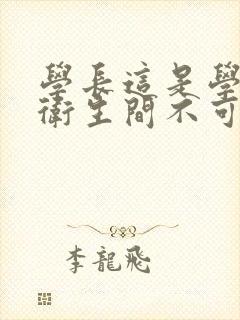 學長這是學
衛生間不可
李龍飛